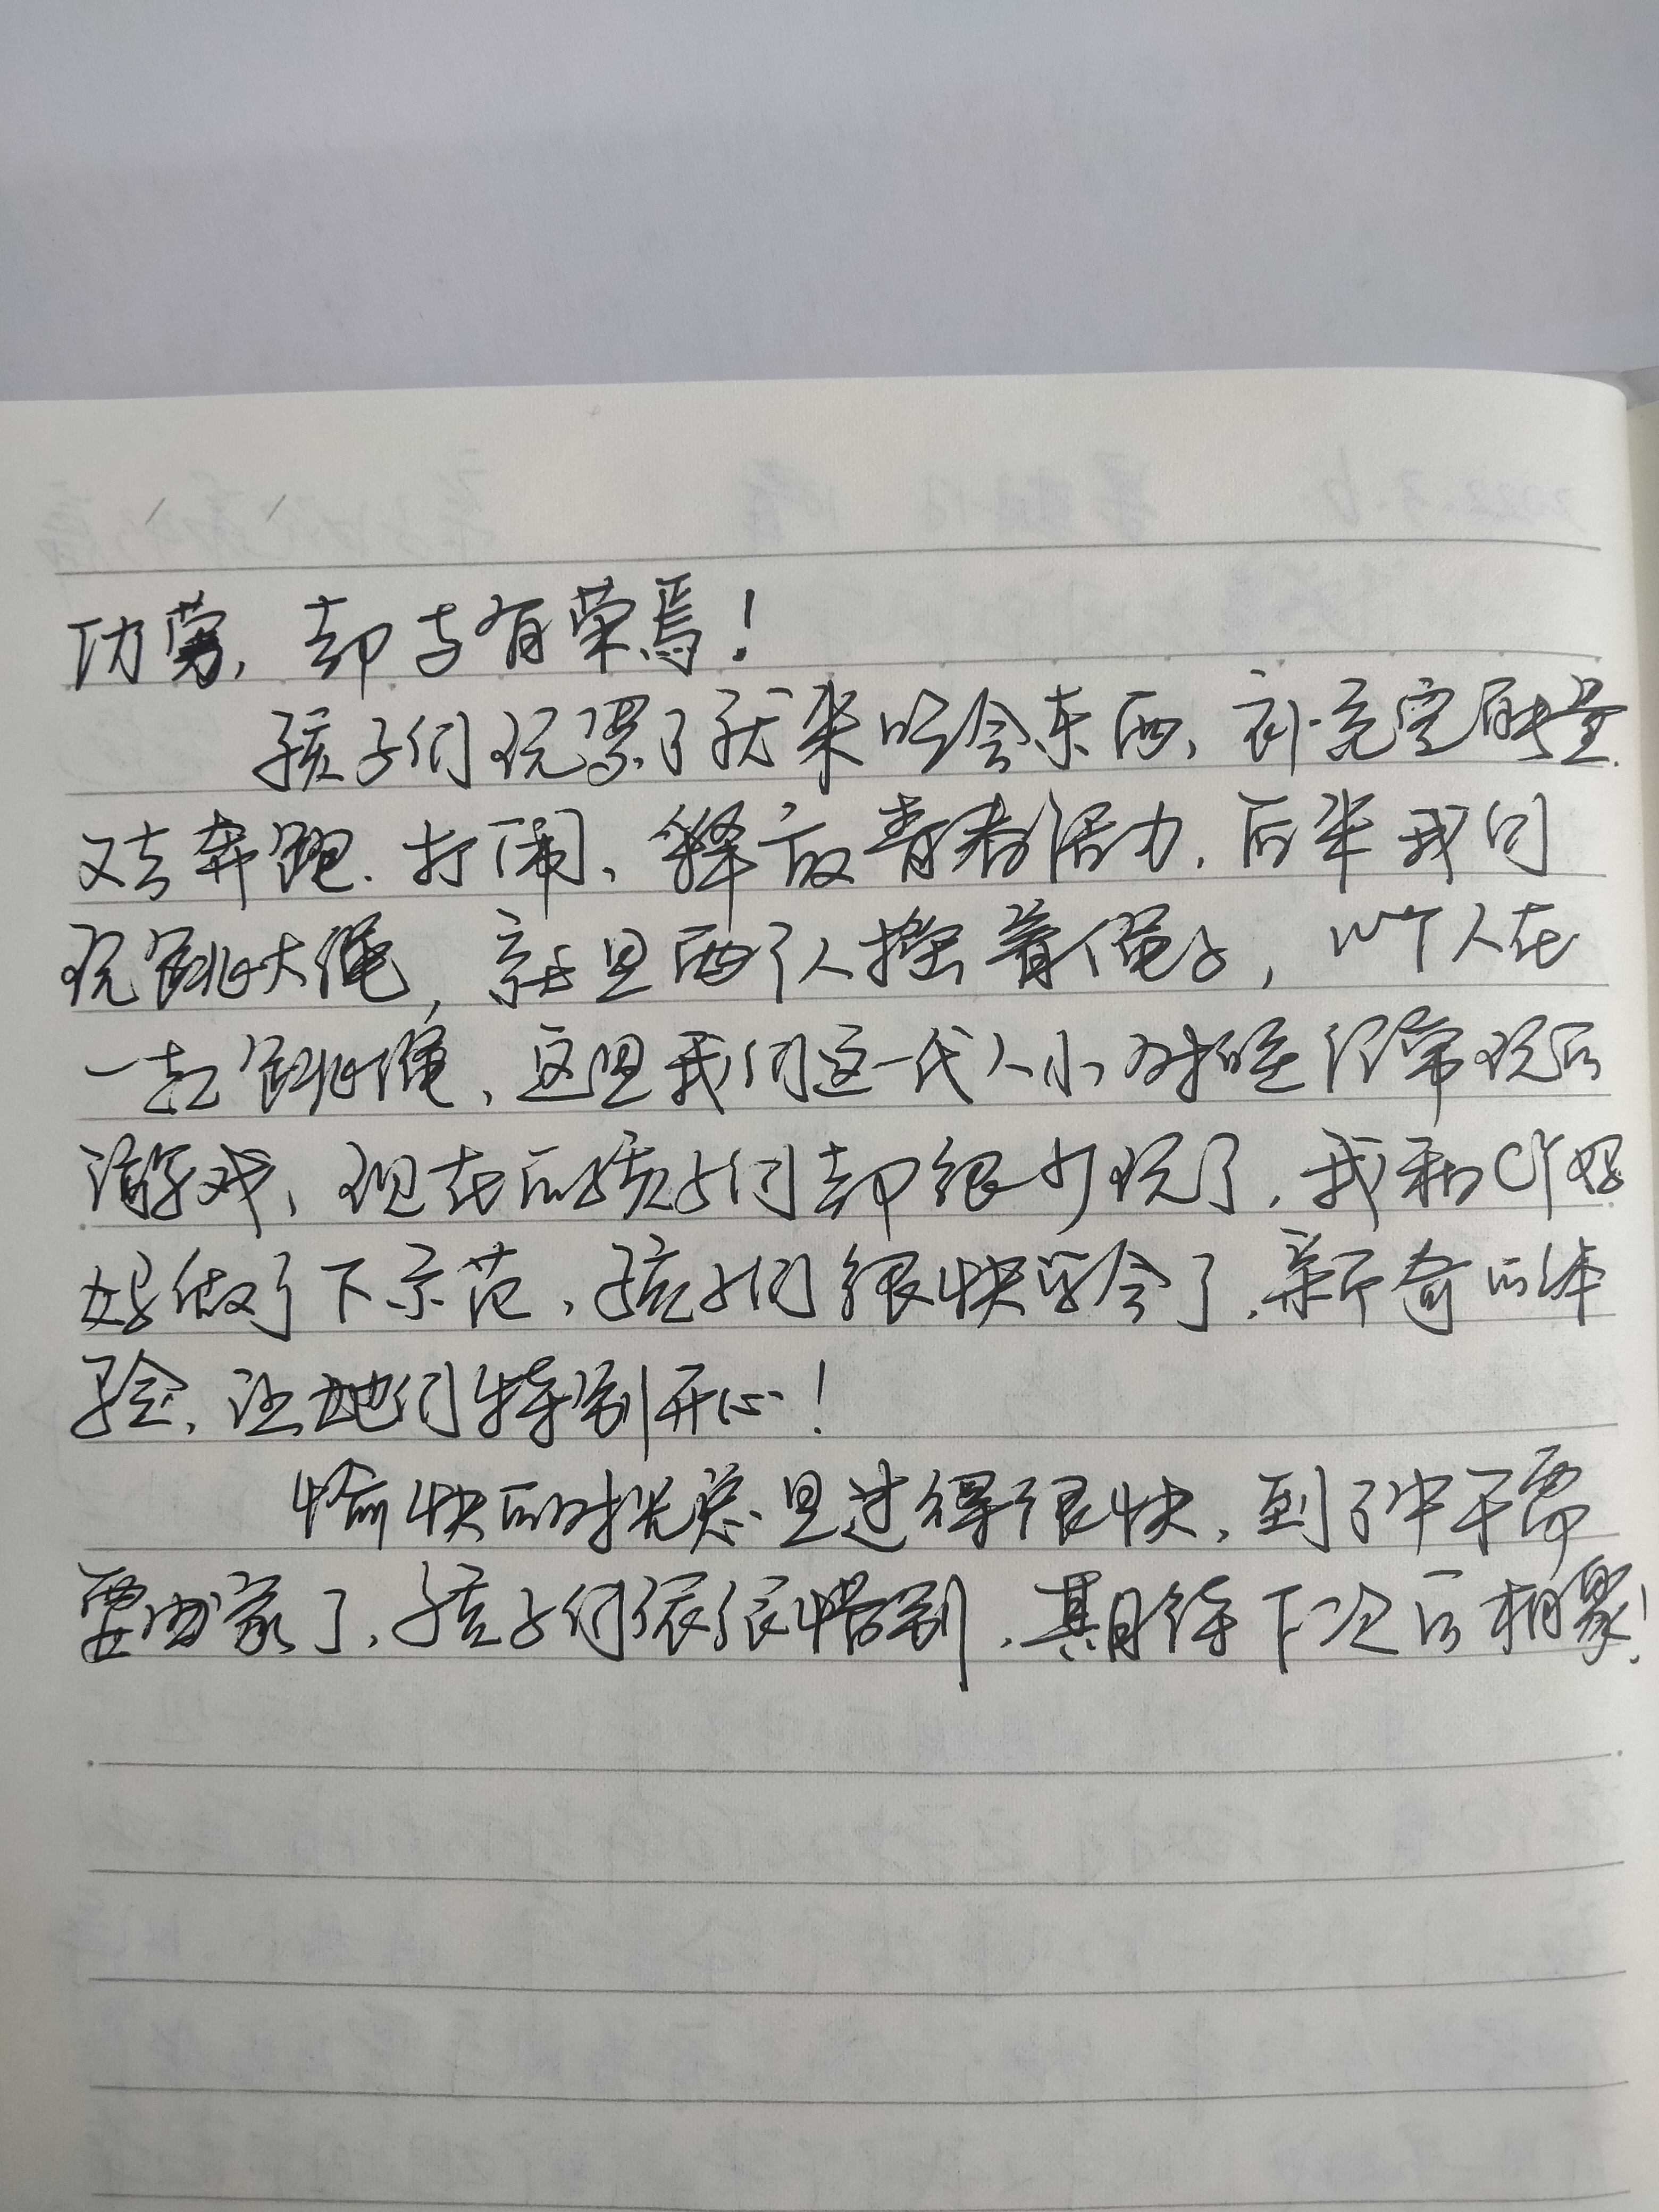 功劳，却与有荣焉！
孩子们玩累了就来吃会东西，补充完能量，
又去奔跑、打闹、释放青春活力，后来我们
玩跳大绳，就是两个人摇着绳子，几个人在
一起跳绳，这是我们这一代人小时候经常玩的
游戏，现在的孩子们却很少玩了，我和CY妈
妈做了下示范，孩子们很快学会了，新奇的体
验，让她们特别开心！
愉快的时光总是过得很快，到了中午需
要回家了，孩子们依依惜别，期待下次的相聚！